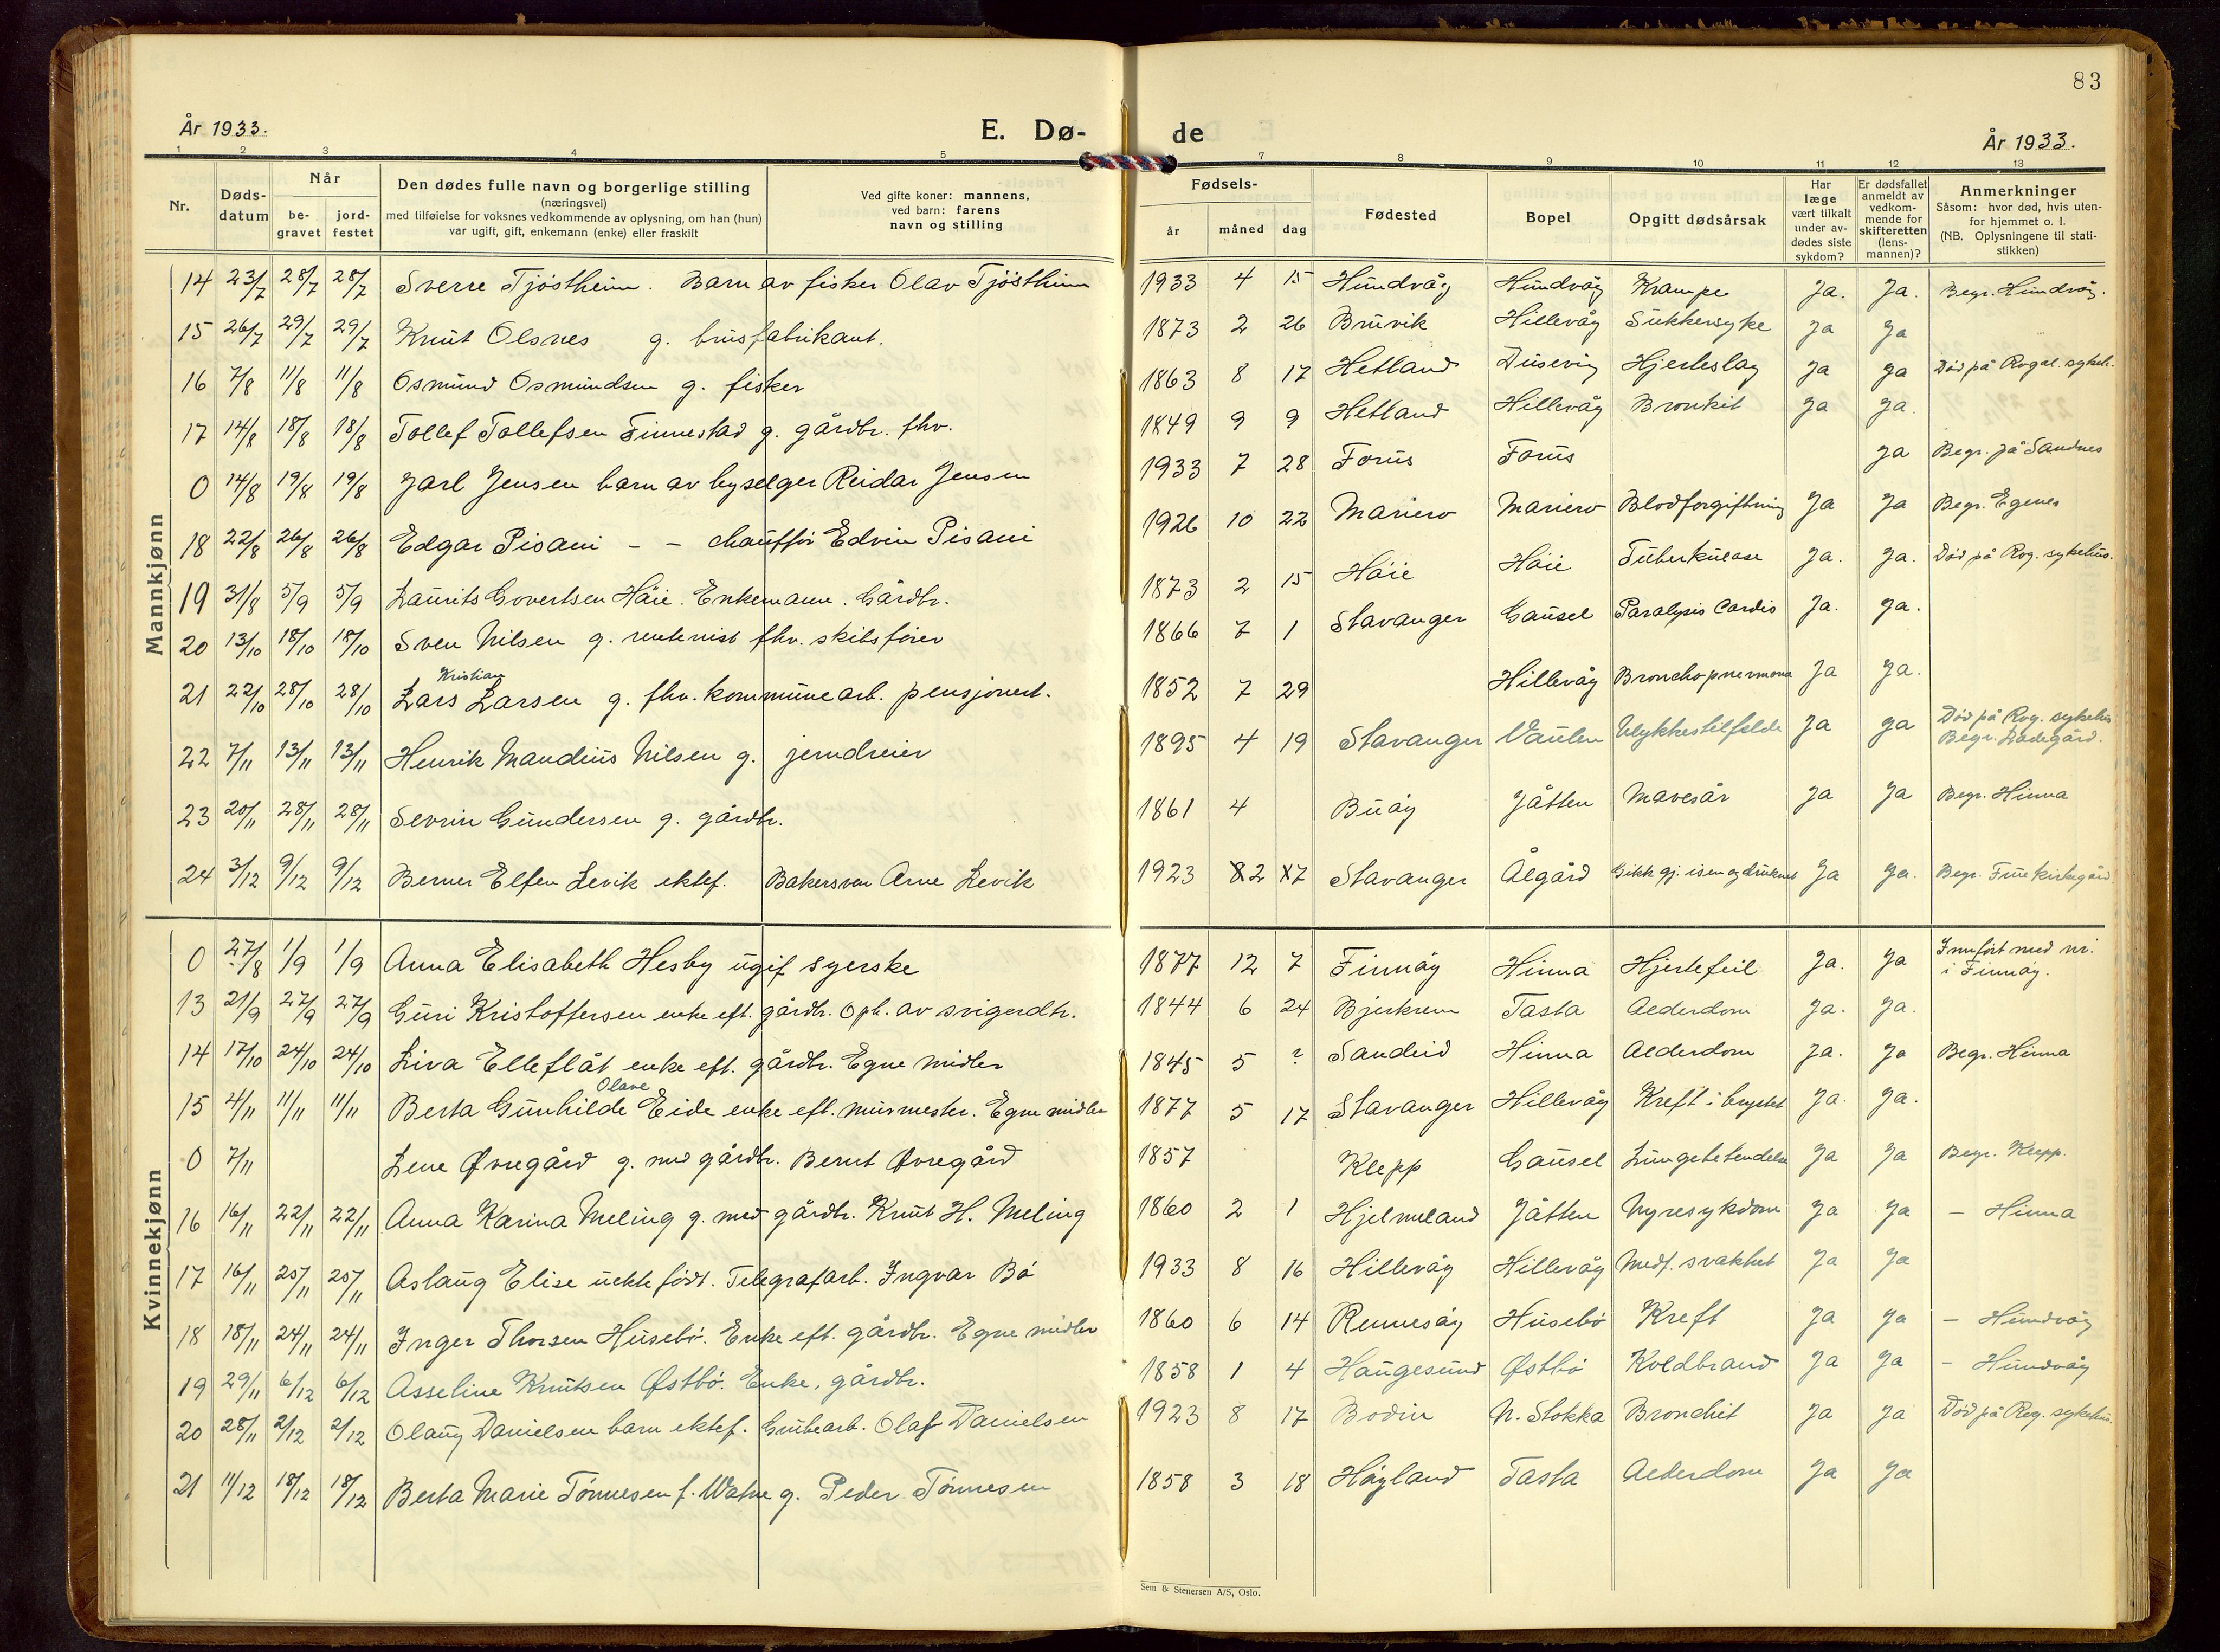 83
År 1933.
E. Dø-
de
År 1933.
1 2 3 4 5 7 8 9 10 11 12 13
Nr.
Døds-
datum
Når
be-
gravet
jord-
festet
Den dødes fulle navn og borgerlige stilling
(næringsvei)
med tilføielse for voksnes vedkommende av oplysning, om han (hun)
var ugift, gift, enkemann (enke) eller fraskilt
Ved gifte koner: mannens,
ved barn: farens
navn og stilling
Fødsels-
år måned dag
Fødested
Bopel
Opgitt dødsårsak
Har
læge
vært tilkalt
under av-
dødes siste
sykdom?
Er dødsfallet
anmeldt av
vedkom-
mende for
skifteretten
(lens-
mannen)?
Anmerkninger
Såsom: hvor død, hvis uten-
for hjemmet o. l.
(NB. Oplysningene til stati-
stikken)
Mannkjønn
14 23/7 28/7 28/7 Sverre Tjöstheim. Barn av fisker Olav Tjöstheim 1933 4 15 Hundvåg Hundvåg Krampe Ja. Ja. Begr. Hundvåg.
15 26/7 29/7 29/7 Knut Olsnes g. brusfabrikant. 1873 2 26 Bruvik Hillevåg Sukkersyke Ja Ja
16 7/8 11/8 11/8 Osmund Osmundsen g. fisker 1863 8 17 Hetland Dusevig Hjerteslag Ja Ja Död på Rogal. sykeh.
17 14/8 18/8 18/8 Tollef Tollefsen Finnestad g. gårdbr. fhv. 1849 9 9 Hetland Hillevåg Bronkit Ja Ja.
0 14/8 19/8 19/8 Jarl Jensen barn av byselger Reidar Jensen 1933 7 28 Forus Forus Ja Begr. på Sandnes
18 22/8 26/8 26/8 Edgar Pisani - - chaufför Edvin Pisani 1926 10 22 Mariero Mariero Blodforgiftning Ja Ja Begr. Egenes
19 31/8 5/9 5/9 Laurits Govertsen Häie. Enkemann. Gårdbr. 1873 2 15 Häie Häie Tuberkulose Ja. Ja. Död på Rog. sykehus.
20 13/10 18/10 18/10 Sven Nilsen g. rentenist fhv. skibsförer 1866 7 1 Stavanger Gausel Paralysis Cordis Ja. Ja.
Kristian
21 22/10 28/10 28/10 Lars Larsen g. fhv. kommunearb. pensjonert. 1852 7 29 Hillevåg Bronchopnevmona Ja Ja.
22 7/11 13/11 13/11 Henrik Mandius Nilsen g. jerndreier 1895 4 19 Stavanger Vaulen Ulykkestilfelde Ja Ja Död på Rog. sykehus
Begr. Ladegård.
23 20/11 28/11 28/11 Sevrin Gundersen g. gårdbr. 1861 4 Buöy Jåtten Mavesår Ja Ja Begr. Hinna
24 3/12 9/12 9/12 Berner Elfen Levik ektef. Bakersven Arne Levik 1923 2 7 Stavanger Ålgård Gikk gj. isen og druknet Ja Ja.
Kvinnekjønn
0 27/8 1/9 1/9 Anna Elisabeth Hesby ugif syerske 1877 12 7 Finnöy Hinna Hjertefeil Ja. Ja Innfört med nr.
i Finnöy.
13 21/9 27/9 27/9 Guri Kristoffersen enke eft. gårdbr. Oph. av svigerdtr. 1844 6 24 Bjerkrem Tasta Alderdom Ja. Ja.
14 17/10 24/10 24/10 Liva Elleflåt enke eft. gårdbr. Egne midler 1845 5 ? Sandeid Hinna Alderdom Ja. Ja Begr. Hinna
Olave
15 4/11 11/11 11/11 Berta Gunhilde Eide enke eft. murmester. Egne midler 1877 5 17 Stavanger Hillevåg Kreft i brystet Ja. Ja.
0 7/11 Lene Øvregård g. med gårdbr. Bernt Øvregård 1857 Klepp Gausel Lungebetendelse Ja Ja Begr. Klepp.
16 16/11 22/11 22/11 Anna Karina Meling g. med gårdbr. Knut H. Meling 1860 2 1 Hjelmeland Jåtten Nyresykdom Ja Ja - Hinna
17 16/11 20/11 20/11 Aslaug Elise uekte født. Telegrafarb. Ingvar Bö 1933 8 16 Hillevåg Hillevåg Medf. svakhet Ja Ja
18 18/11 24/11 24/11 Inger Thorsen Husebö. Enke eft. gårdbr. Egne midler 1860 6 14 Rennesöy Husebö Kreft Ja Ja - Hundvåg
19 29/11 6/12 6/12 Asseline Knutsen Østbö. Enke, gårdbr. 1858 1 4 Haugesund Østbö Koldbrand Ja Ja - Hundvåg
20 28/11 2/12 2/12 Olaug Danielsen barn ektef. Grubearb. Olaf Danielsen 1923 8 17 Bodin N. Stokka Bronchit Ja Ja Död på Rog. sykehus.
21 11/12 18/12 18/12 Berta Marie Tönnesen f. Watne g. Peder Tönnesen 1858 3 18 Höyland Tasta Alderdom Ja Ja
Sem & Stenersen A/S, Oslo.